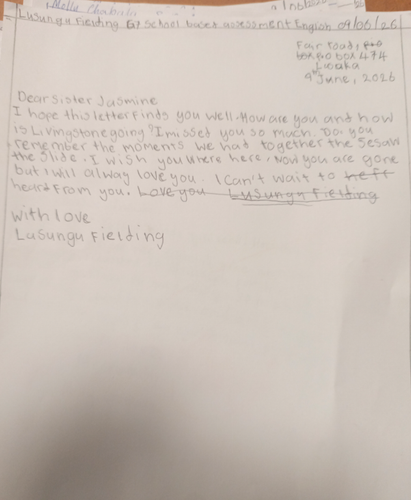 Lusungu Fielding G7 School based assessment English 09/06/26
Fair road, P.o
box P.o box 474
Lusaka
9th June, 2026
Dear Sister Jasmine
I hope this letter finds you well. How are you and how
is Livingstone going? I missed you so much. Do you
remember the moments we had together the Sesaw
the Slide. I wish you where here, Now you are gone
but I will alway love you. I can't wait to heft
heard from you. Love you Lusungu Fielding
With love
Lusungu Fielding